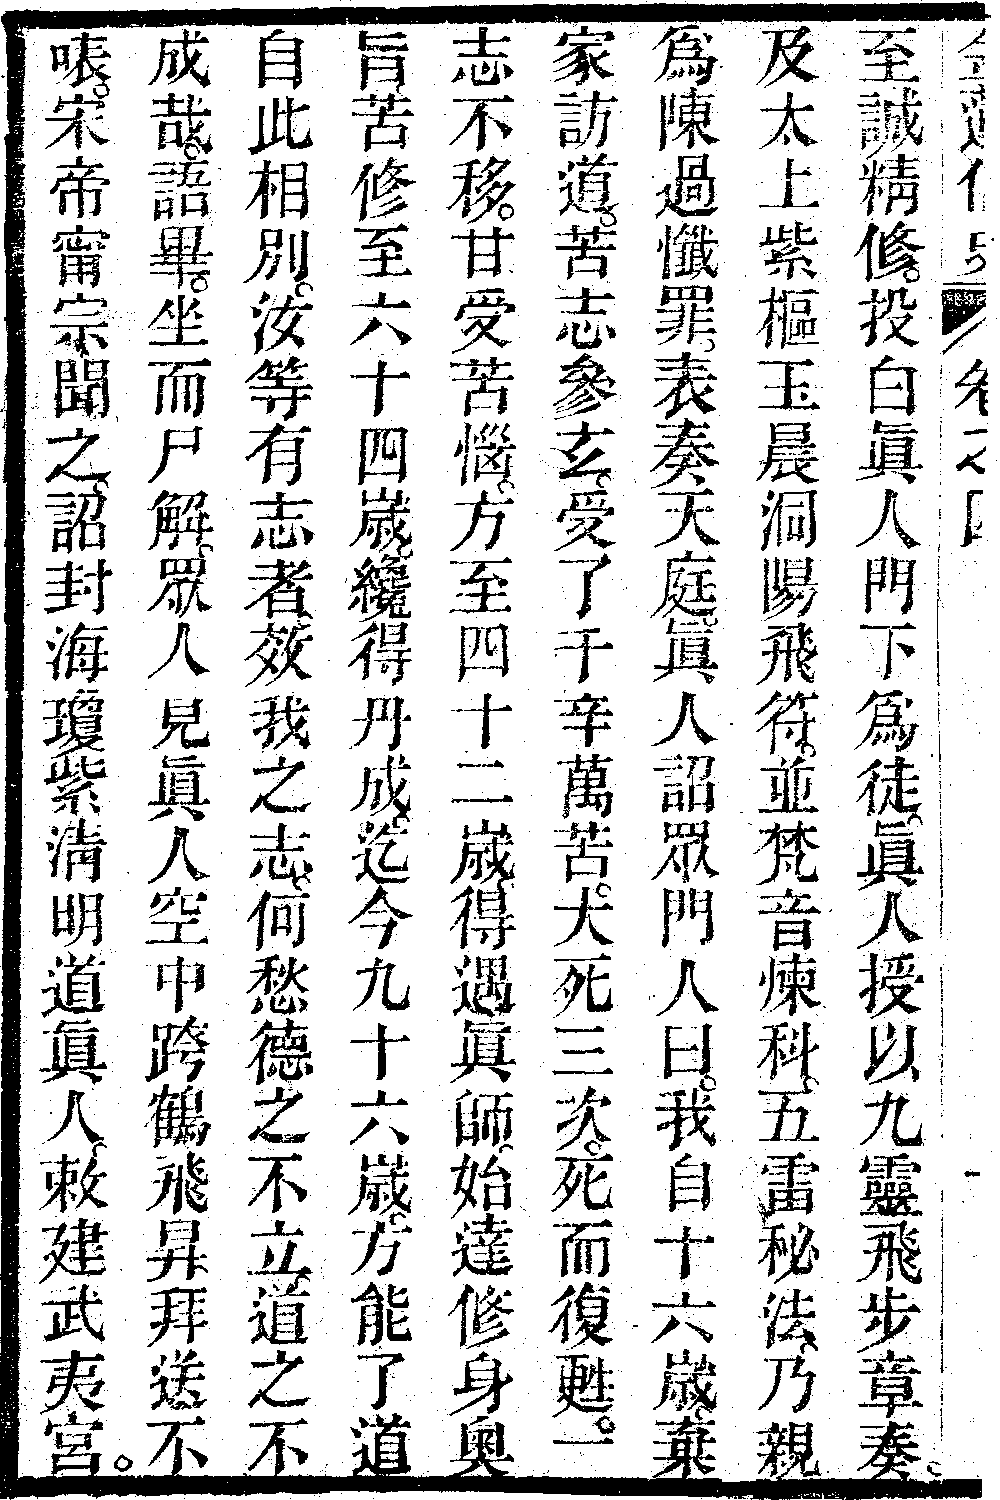 至誠精修。投白眞人門下爲徒。眞人授以九靈飛步章奏。
及太上紫樞玉晨洞陽飛符。並梵音煉科。五雷秘法。乃親
爲陳過懺罪。表奏天庭。眞人詔眾門人曰。我自十六歲。棄
家訪道。苦志參玄。受了千辛萬苦。犬死三次。死而復甦。一
志不移。甘受苦惱。方至四十二歲。得遇眞師。始達修身奧
旨。苦修至六十四歲。纔得丹成。迄今九十六歲。方能了道
自此相別。汝等有志者。效我之志。何愁德之不立。道之不
成哉。語畢。坐而尸解。眾人見眞人空中跨鶴飛昇拜送不
嗁。宋帝甯宗聞之。詔封海瓊紫淸明道眞人。敕建武夷宮。